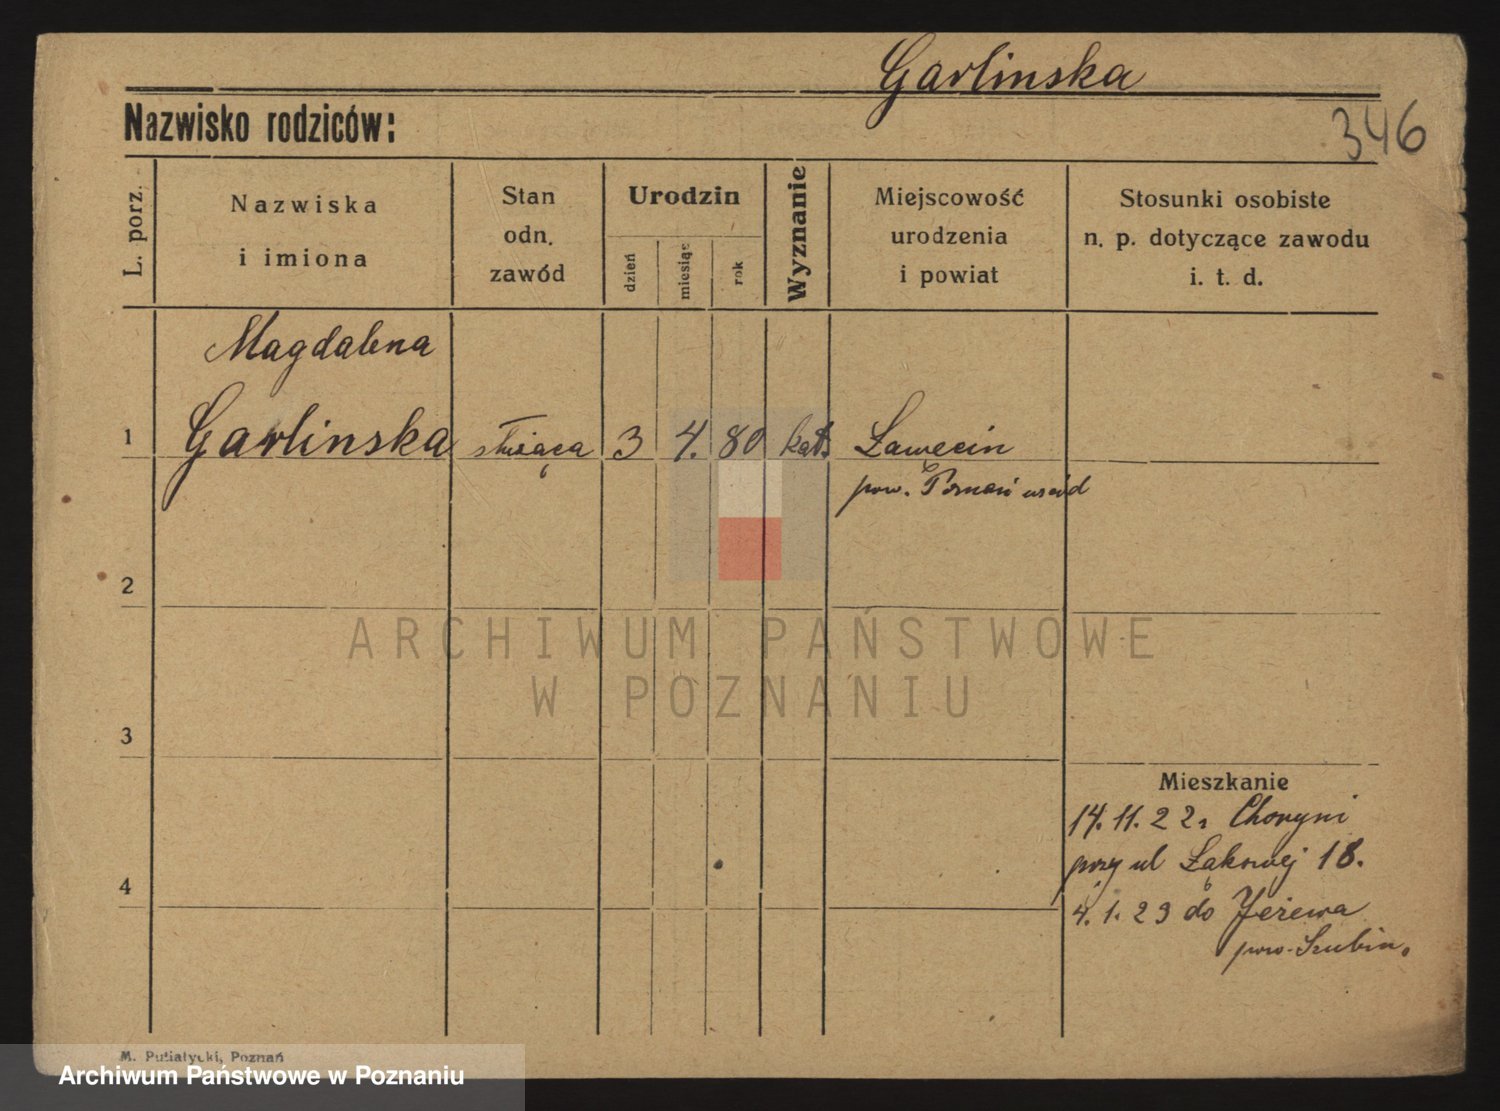 Garlinska
Nazwisko rodziców:
346
L. porz.
Nazwiska
i imiona
Stan
odn.
zawód
Urodzin
dzień
miesiąc
rok
Wyznanie
Miejscowość
urodzenia
i powiat
Stosunki osobiste
n. p. dotyczące zawodu
i. t. d.
Magdalena
1 Garlinska służąca 3 4. 80 kat. Ławęcin
pow. Poznań
2
ARCHIWUM PAŃSTWOWE
W POZNANIU
3
Mieszkanie
14.11.22 Choryni
przy ul Łąkowej 18.
4
4.1.23 do Jeżewa
pow. Szubin.
M. Putiatycki, Poznań
Archiwum Państwowe w Poznaniu